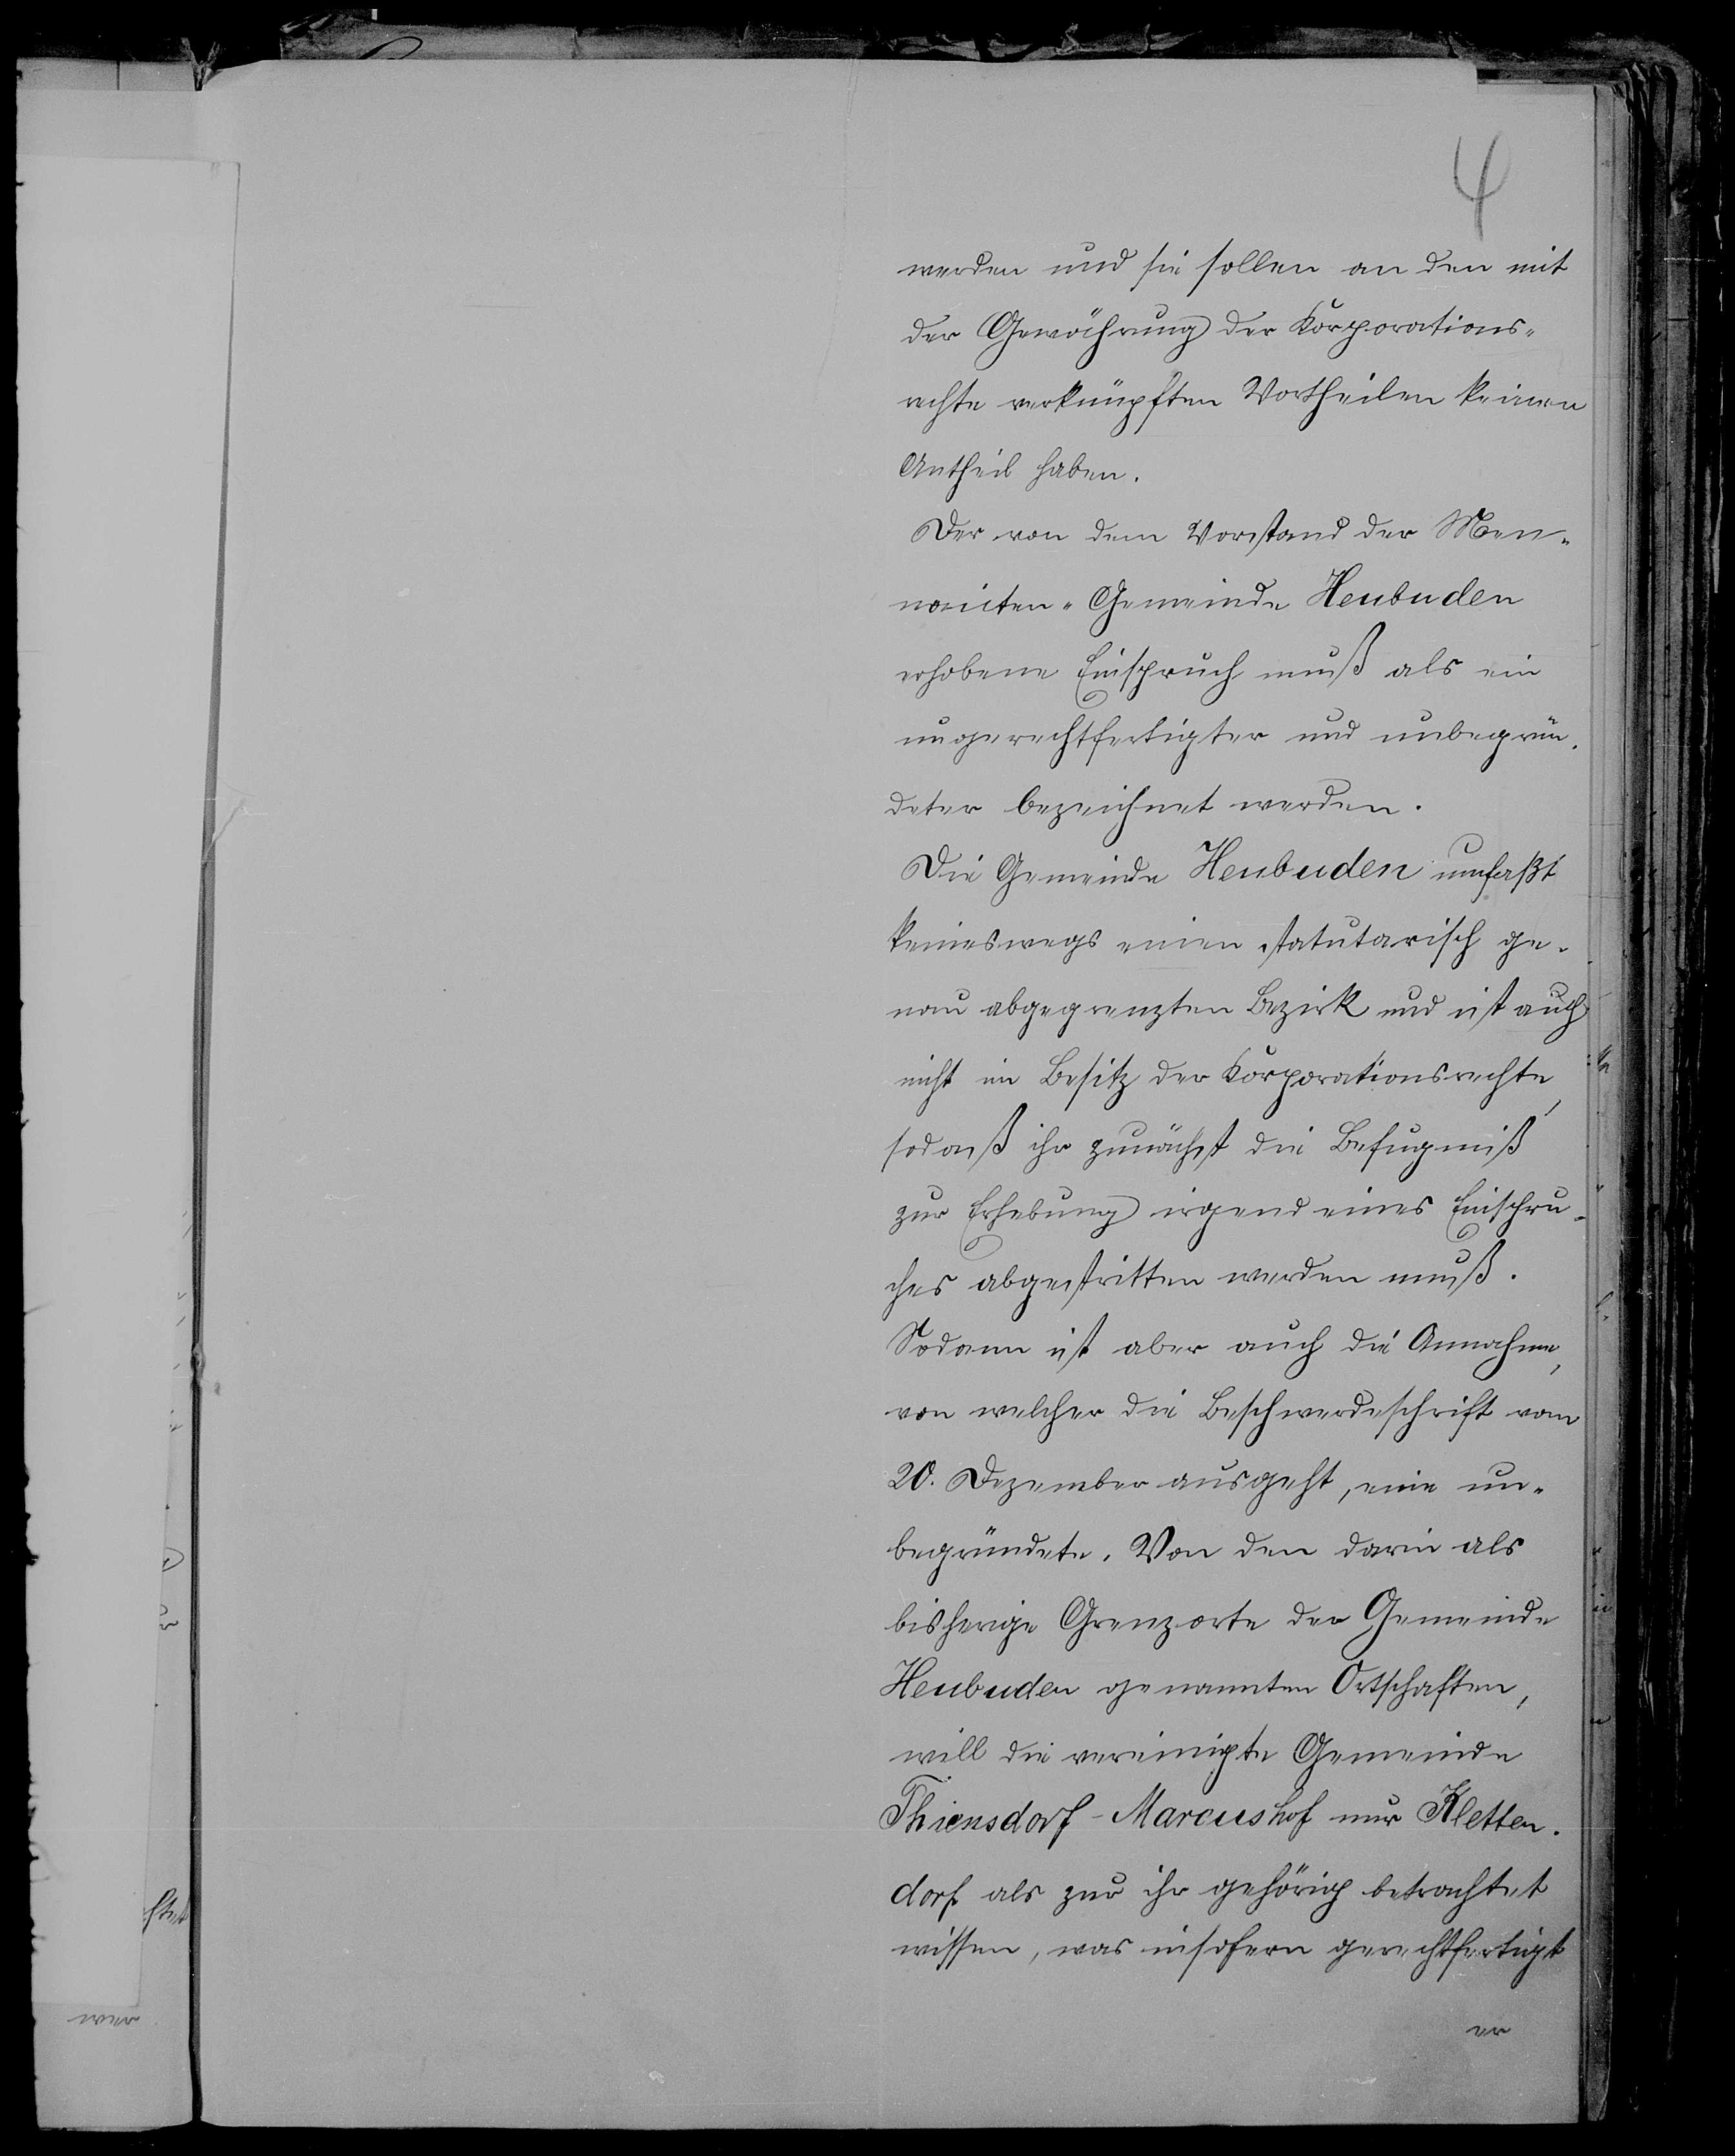 4
werden und sie sollen an den mit
der Gewährung der Korporations-
rechte verknüpften Vortheilen keinen
Antheil haben.
Der von dem Vorstand der Men-
noniten-Gemeinde Heubuden
erhobene Einspruch muß als ein
ungerechtfertigter und unbegrün-
deter bezeichnet werden.
Die Gemeinde Heubuden umfaßt
keineswegs einen statutarisch ge-
nau abgegrenzten Bezirk und ist auch
nicht im Besitz der Korporationsrechte,
sodaß ihr zunächst die Befugniß
zur Erhebung irgend eines Einspru-
ches abgestritten werden muß.
Sodann ist aber auch die Annahme,
von welcher die Beschwerdeschrift vom
20. Dezember ausgeht, eine un-
begründete. Von den darin als
bisherige Grenzorte der Gemeinde
Heubuden genannten Ortschaften,
will die vereinigte Gemeinde
Thiensdorf-Marcushof nur Kletten-
dorf als zur ihr gehörig betrachtet
wissen, was insofern gerechtfertigt
er